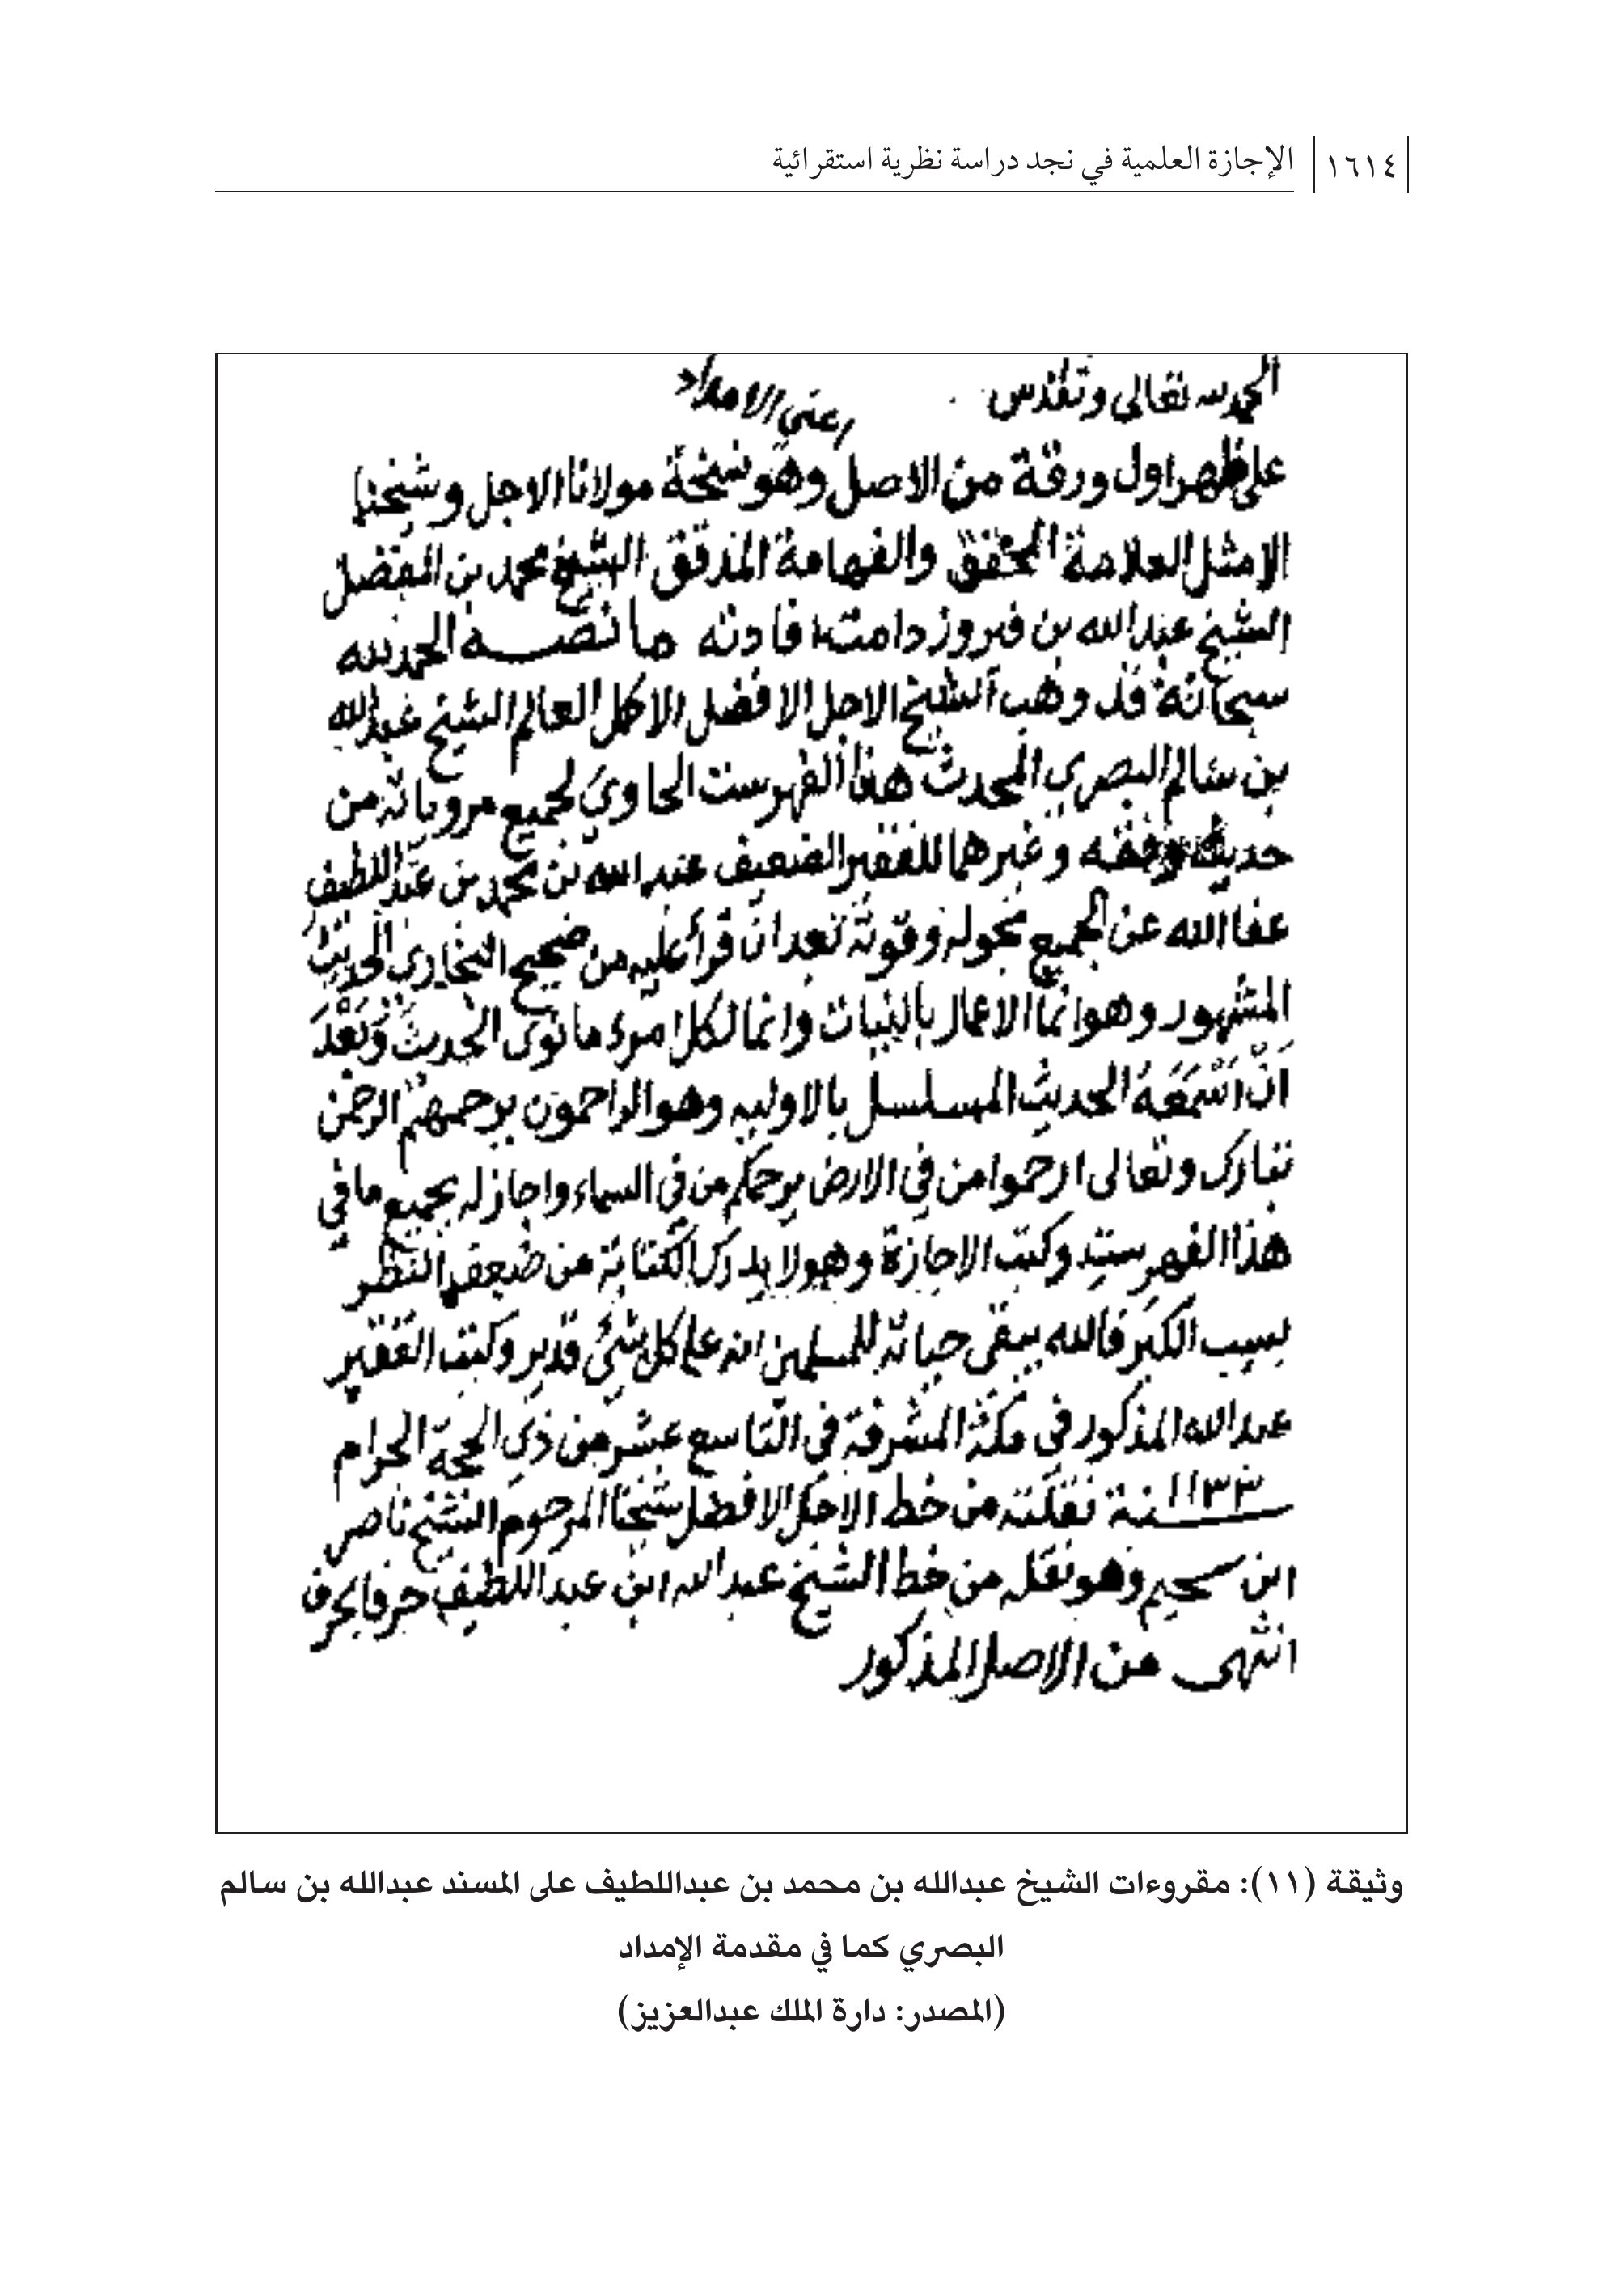 ١٦١٤ الإجازة العلمية في نجد دراسة نظرية استقرائية
الحمد لله تعالى وتقدس
اعني الامداد
على ظهر اول ورقة من الاصل وهو نسخة مولانا الاجل وشيخنا
الامثل العلامة المحقق والفهامة المدقق الشيخ محمد بن المفضل
الشيخ عبدالله بن فيروز دامت افادته ما نصه الحمد لله
سبحانه قد وهب الشيخ الاجل الافضل الاكمل العالم الشيخ عبدالله
بن سالم البصري المحدث هذا الفهرست الحاوي لجميع مروياته من
حديث وفقه وغيرها للفقير الضعيف عبد الله بن محمد بن عبد اللطيف
عفا الله عن الجميع بحوله وقوته بعد ان قرأ عليه من صحيح البخاري الحديث
المشهور وهو انما الاعمال بالنيات وانما لكل امرء ما نوى الحديث وبعد
ان اسمعه الحديث المسلسل بالاوليه وهو الراحمون يرحمهم الرحمن
تبارك وتعالى ارحموا من في الارض يرحمكم من في السماء واجاز له بجميع ما في
هذا الفهرست وكتب الاجازة وهو لا يدرك الكتابة من ضعف النظر
بسبب الكبر فالله يبقي حياته للمسلمين انه على كل شئ قدير وكتب الفقير
عبدالله المذكور في مكة المشرفة في التاسع عشر من ذي الحجة الحرام
سنة ١١٣٣ نقلته من خط الاجل الافضل شيخنا المرحوم الشيخ ناصر
ابن سحيم وهو نقله من خط الشيخ عبدالله ابن عبد اللطيف حرفا بحرف
انتهى من الاصل المذكور
وثيقة (١١): مقروءات الشيخ عبدالله بن محمد بن عبداللطيف على المسند عبدالله بن سالم
البصري كما في مقدمة الإمداد
(المصدر: دارة الملك عبدالعزيز)